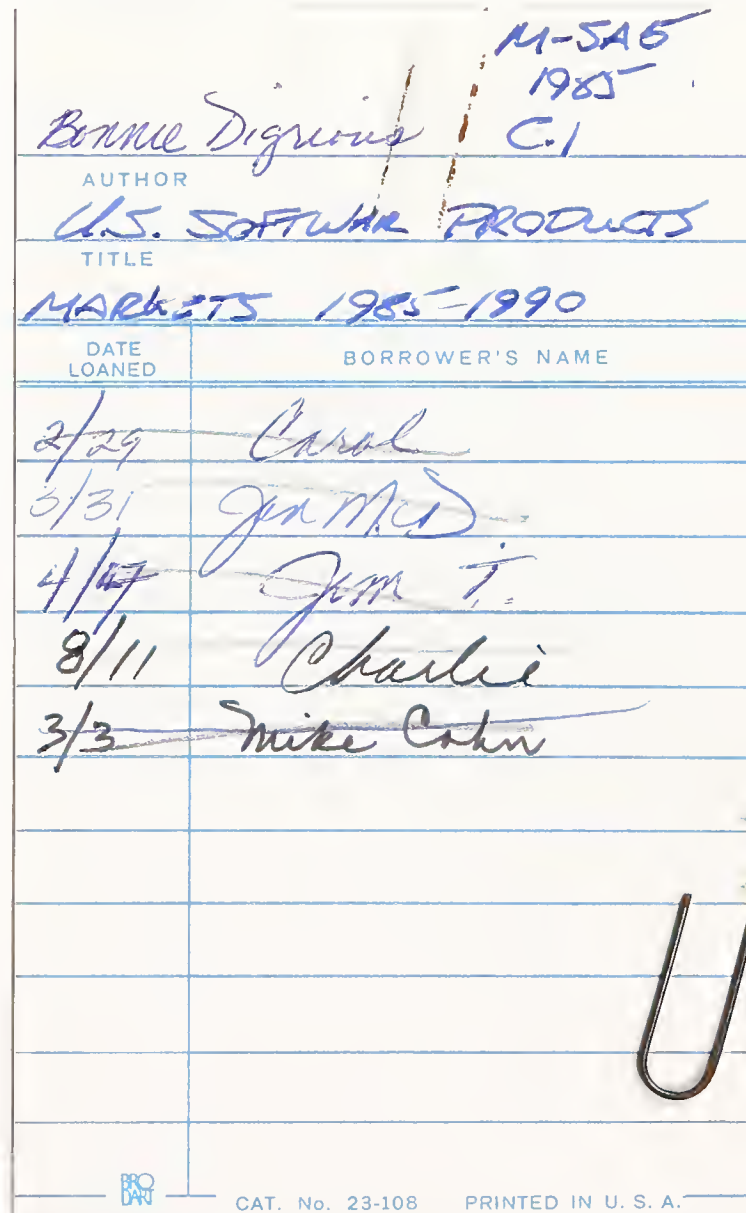 M-SA5
1985
Bonnie Digrious C.1
AUTHOR
U.S. SOFTWAR PRODUCTS
TITLE
MARKETS 1985-1990
DATE LOANED BORROWER'S NAME
2/29 Carol
3/31 Jan McD.
4/ Jim T.
8/11 Charlie
3/3 Mike Cohn
BRO DART CAT. No. 23-108 PRINTED IN U. S. A.